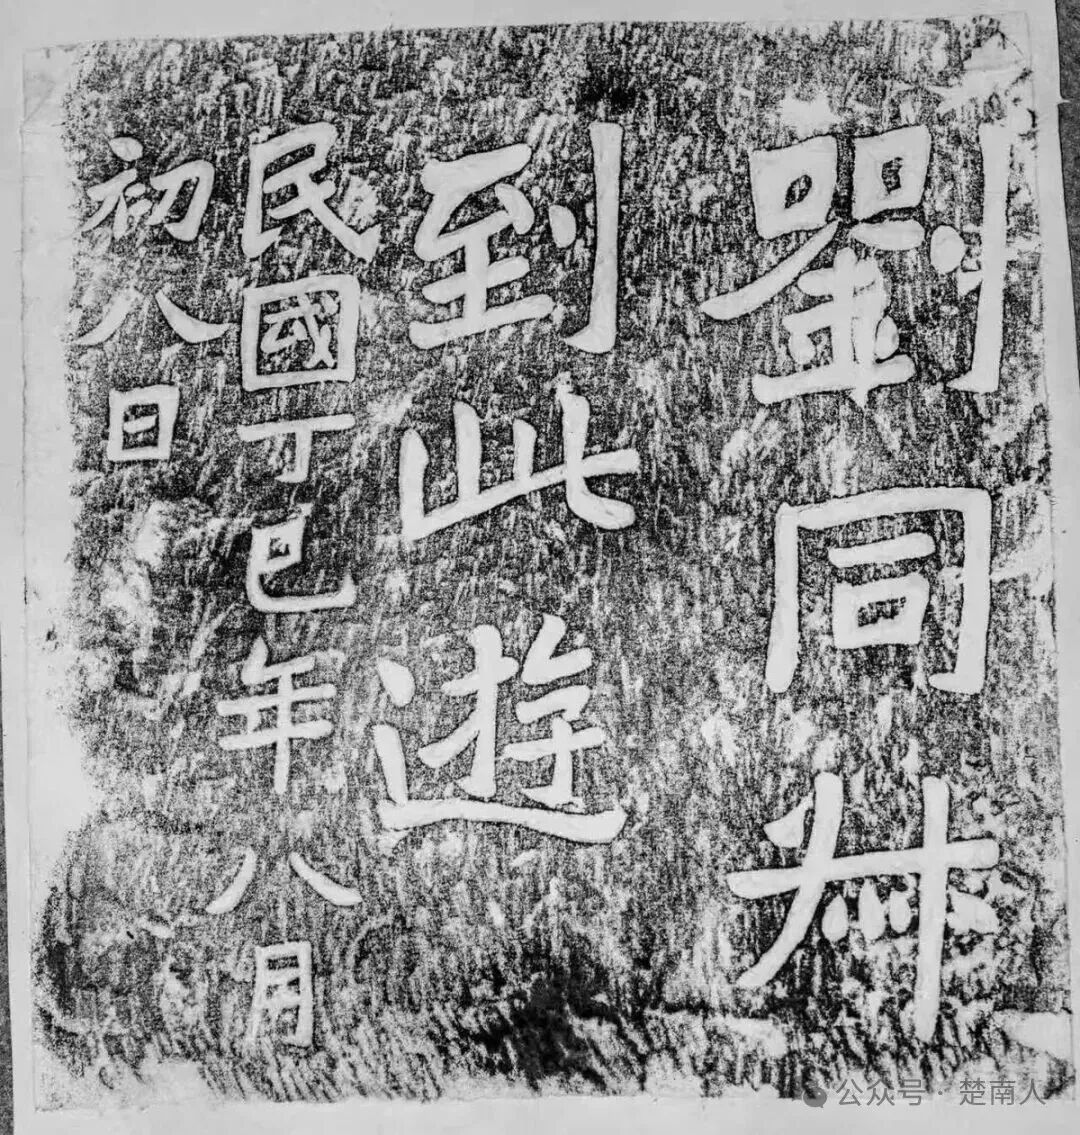 劉同升
到此遊
民國丁巳年八月
初八日
公众号·楚南人